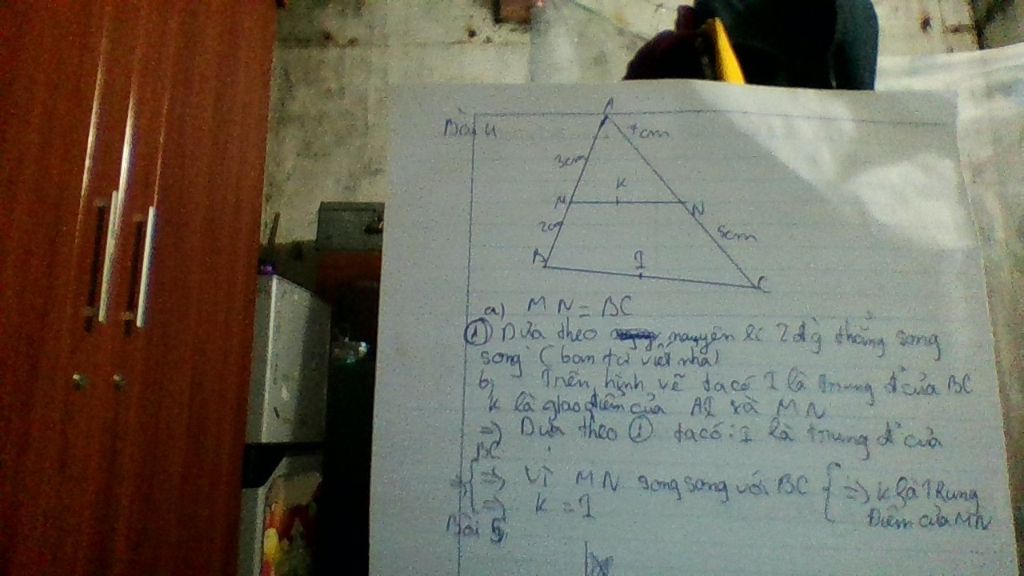 Bài 4
A
7cm
3cm
M K N
2cm
5cm
B I C
a) MN = BC
① Dựa theo nguyên lí 2 đg thẳng song
song (bạn tự viết nha)
b, Trên hình vẽ ta có I là trung đ' của BC
K là giao điểm của AI và MN
=> Dựa theo ① ta có: I là trung đ' của
BC
=> Vì MN song song với BC => K là Trung
=> K = I Điểm của MN
Bài 5